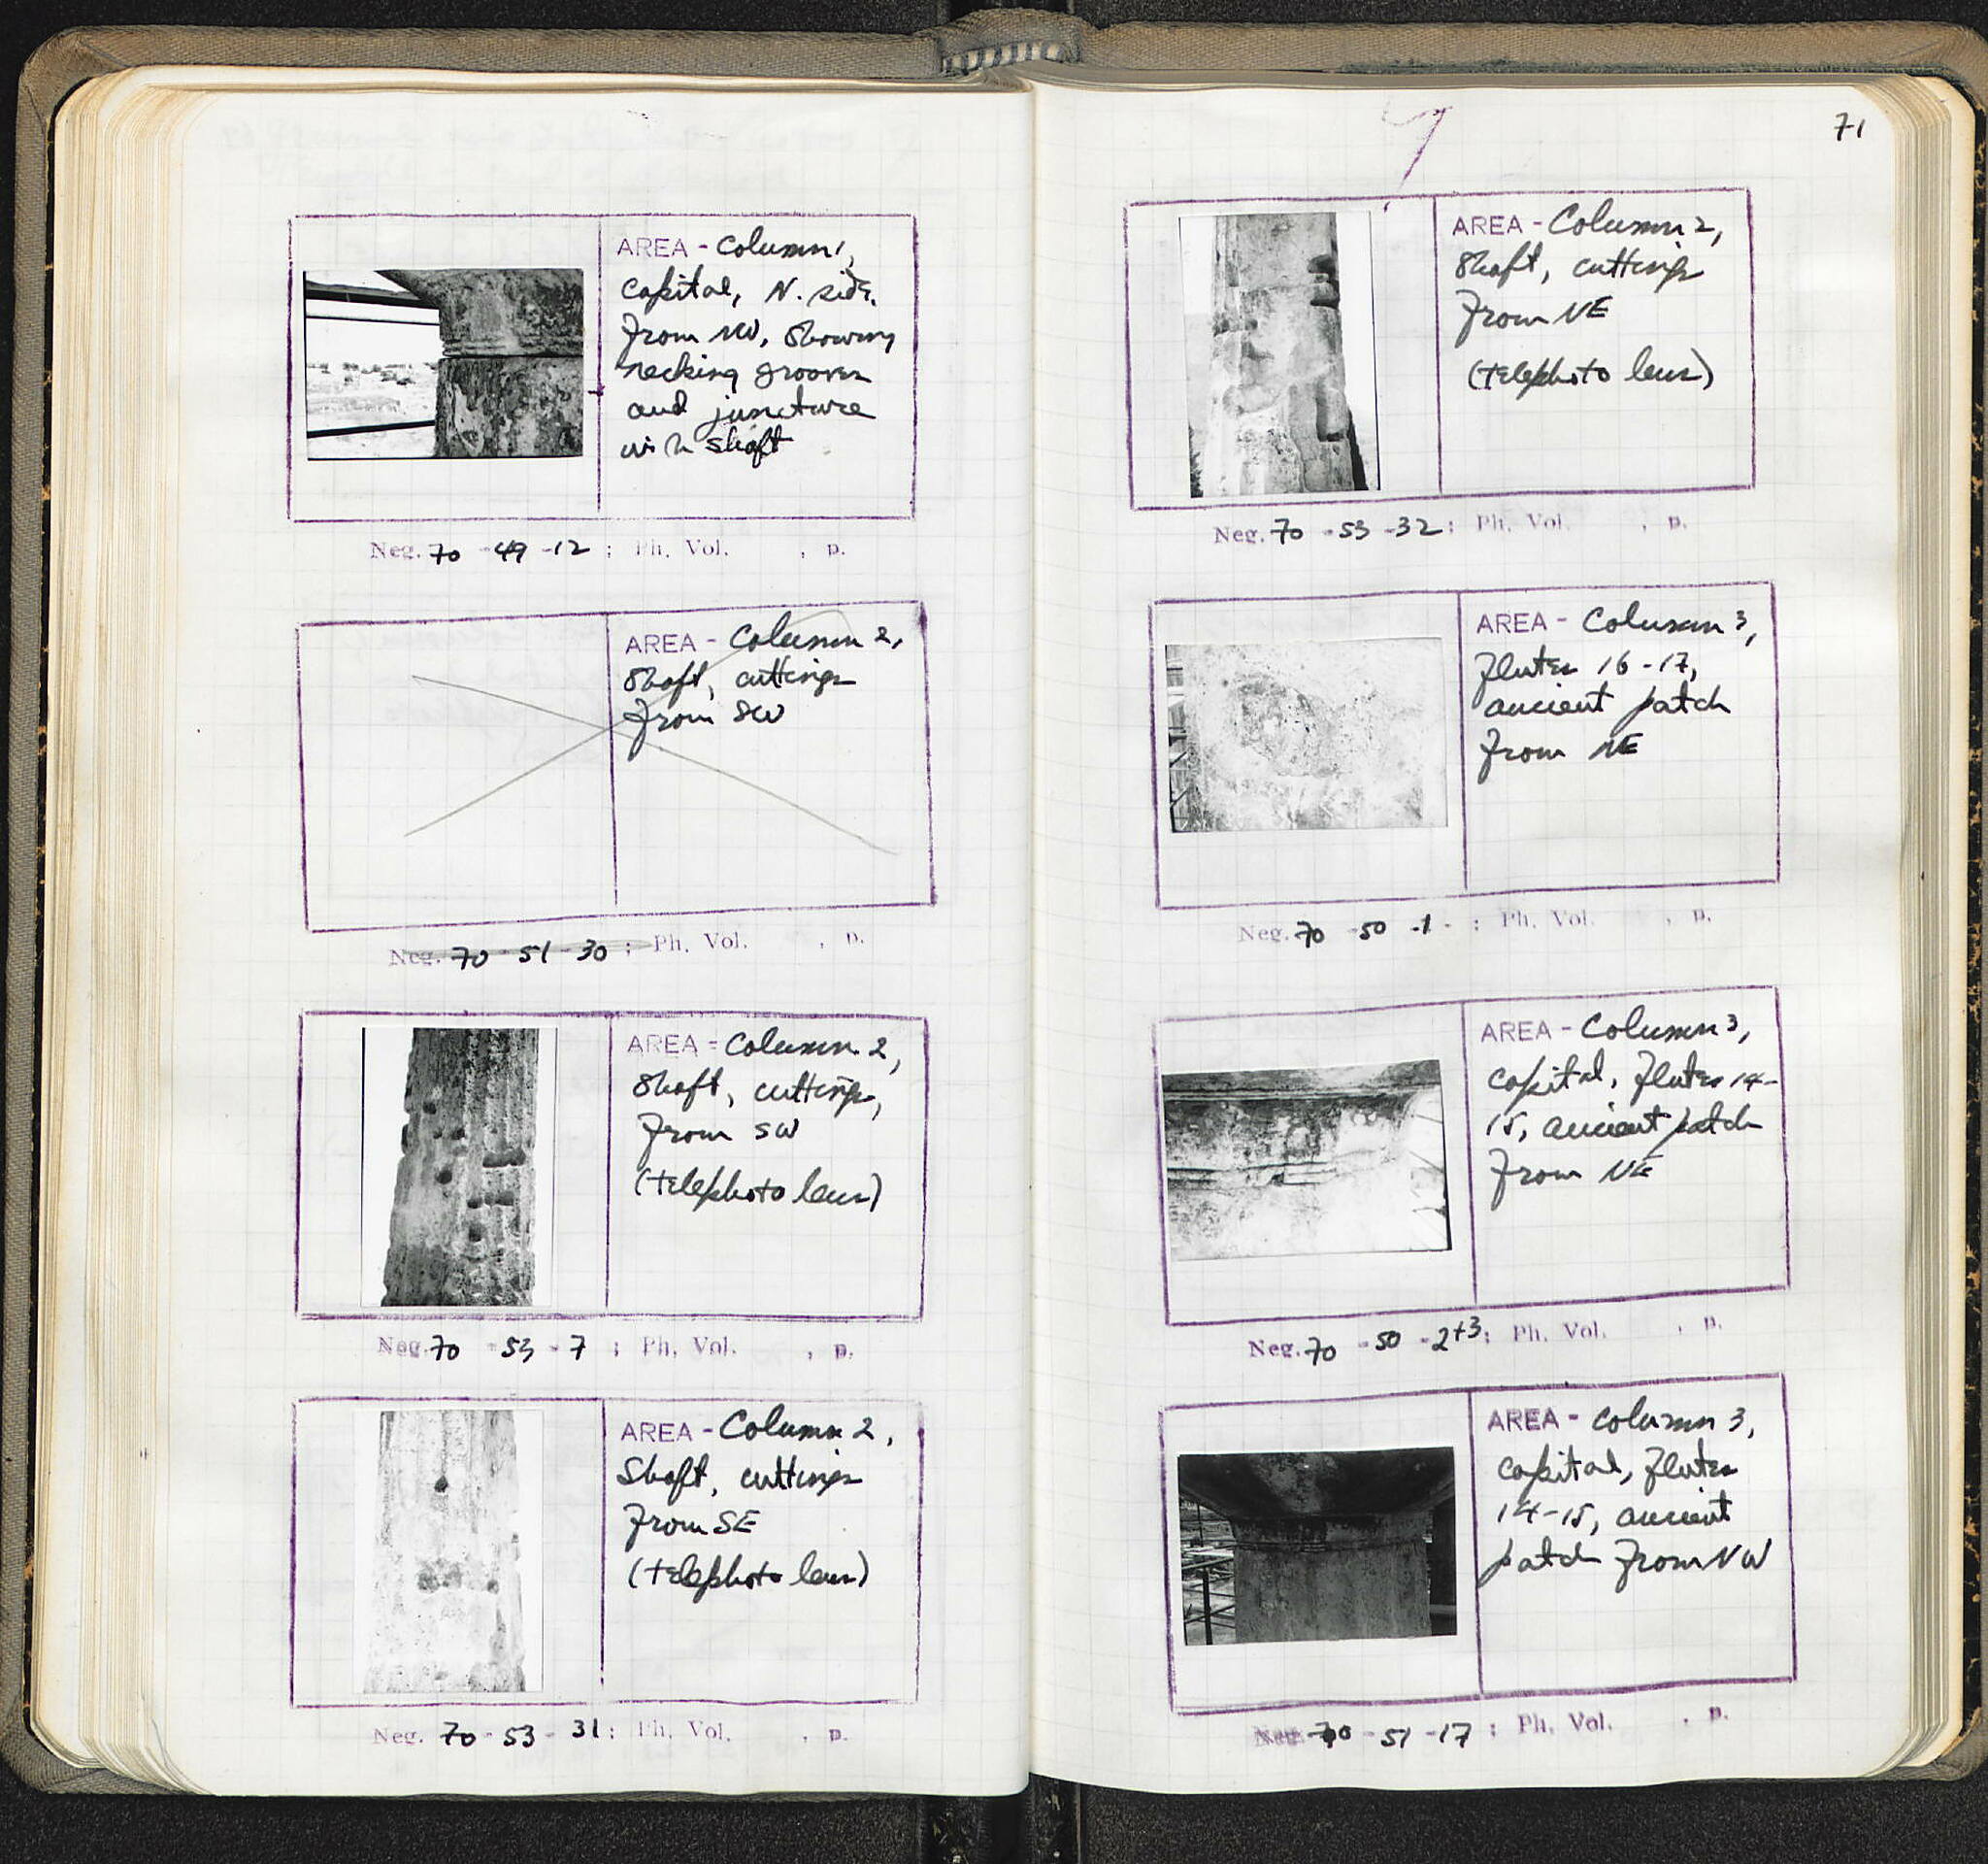 AREA - Column 1,
capital, N. side.
from NW, showing
necking grooves
and juncture
with shaft
Neg. 70 - 49 - 12 ; Ph. Vol. , p.
AREA - Column 2,
shaft, cuttings
from SW
Neg. 70 - 51 - 30 ; Ph. Vol. , p.
AREA - Column 2,
shaft, cuttings,
from SW
(telephoto lens)
Neg. 70 - 53 - 7 ; Ph. Vol. , p.
AREA - Column 2,
Shaft, cuttings
from SE
(telephoto lens)
Neg. 70 - 53 - 31 ; Ph. Vol. , p.
71
AREA - Column 2,
shaft, cuttings
from NE
(telephoto lens)
Neg. 70 - 53 - 32 ; Ph. Vol. , p.
AREA - Column 3,
flutes 16-17,
ancient patch
from NE
Neg. 70 - 50 - 1 - ; Ph. Vol. , p.
AREA - Column 3,
capital, flutes 14-
15, ancient patch
from NE
Neg. 70 - 50 - 2+3 ; Ph. Vol. , p.
AREA - Column 3,
capital, flutes
14-15, ancient
patch from NW
Neg. 70 - 51 - 17 ; Ph. Vol. , p.